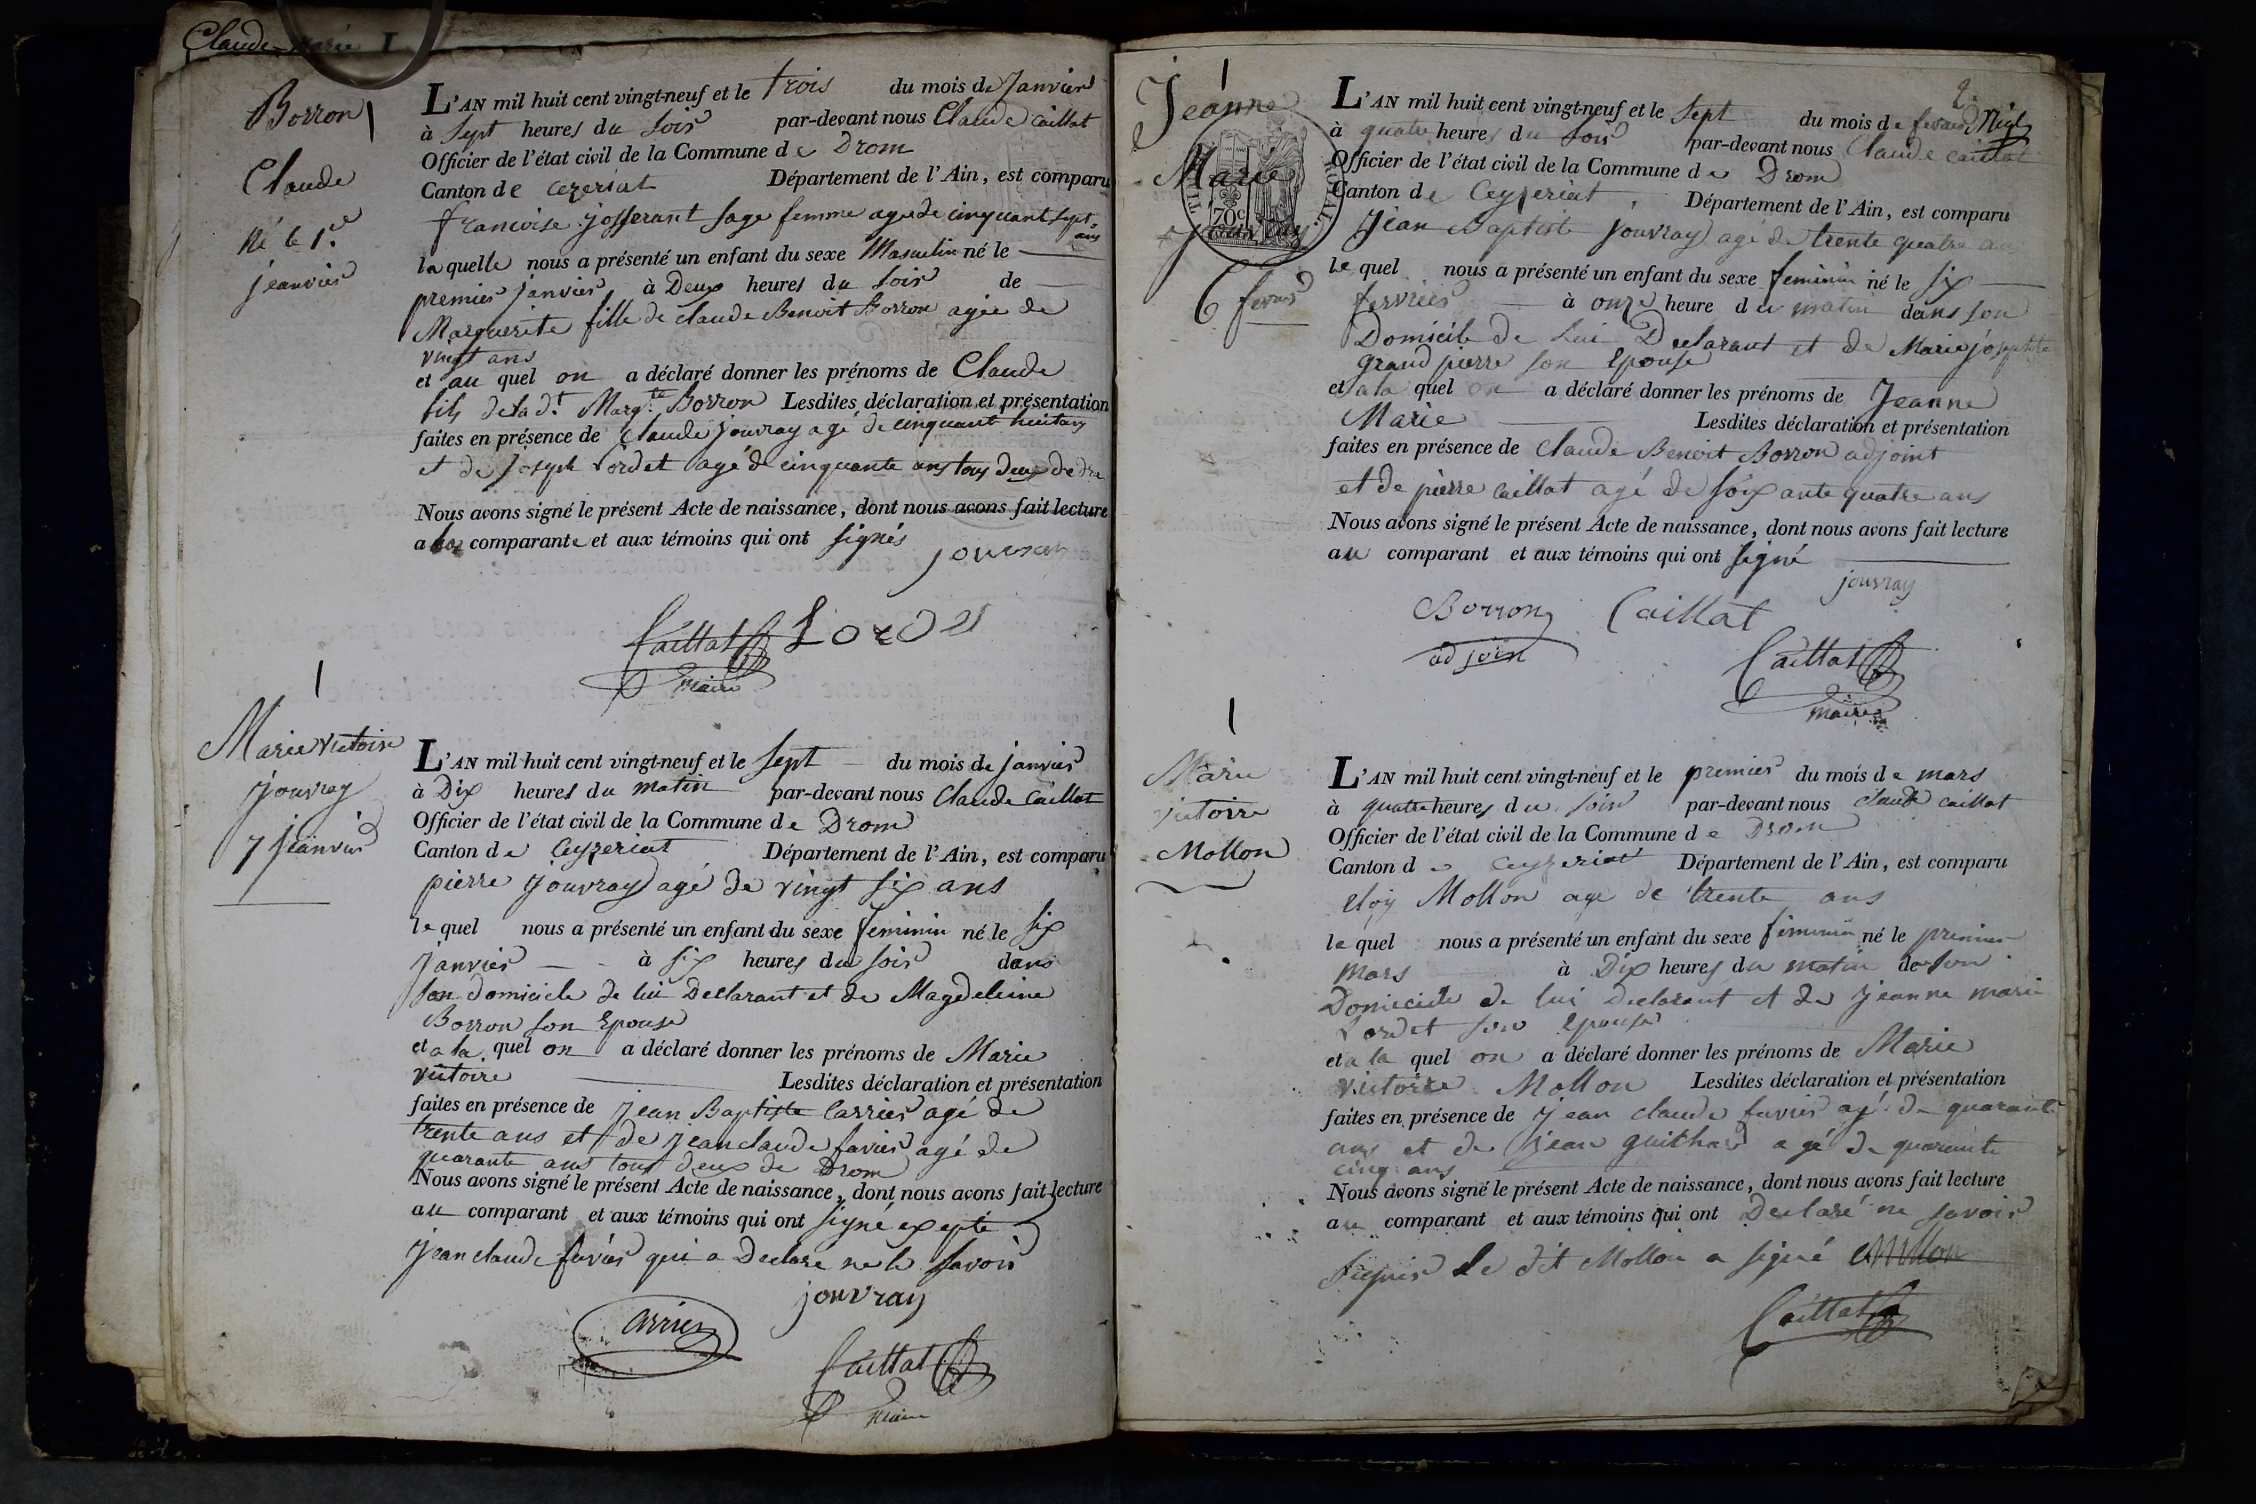 Claude Marie I
Borron
Claude
Né le 1er
jeanvier
L'AN mil huit cent vingt-neuf et le trois du mois de Janvier
à sept heures du soir par-devant nous Claude Caillat
Officier de l'état civil de la Commune de Drom
Canton de Cezeriat Département de l'Ain, est comparu
francoise josserant sage femme agee de cinquant sept ans
laquelle nous a présenté un enfant du sexe Masculin né le
premier Janvier à Deux heures du soir de
Marguerite fille de claude Benoit Borron agée de
vingt ans
et au quel on a déclaré donner les prénoms de Claude
fils de la dt Margte Borron Lesdites déclaration et présentation
faites en présence de Claude jouvray agé de cinquant huit ans
et de Joseph Lordet agé de cinquante ans tous deux de
Nous avons signé le présent Acte de naissance, dont nous avons fait lecture
a la comparante et aux témoins qui ont signés
jouvray
Caillat Lordet
maire
Marie victoire
jouvray
7 jeanvier
L'AN mil huit cent vingt-neuf et le sept du mois de janvier
à Dix heures du matin par-devant nous Claude Caillat
Officier de l'état civil de la Commune de Drom
Canton de Ceyzeriat Département de l'Ain, est comparu
pierre jouvray agé de vingt six ans
lequel nous a présenté un enfant du sexe feminin né le six
janvier à six heures du soir dans
son domicile de lui Declarant et de Magdeleine
Borron son Epouse
et a la quel on a déclaré donner les prénoms de Marie
victoire Lesdites déclaration et présentation
faites en présence de jean Baptiste Carrier agé de
trente ans et de jean claude favier agé de
quarante ans tous deux de Drom
Nous avons signé le présent Acte de naissance, dont nous avons fait lecture
au comparant et aux témoins qui ont signé exepté
jean claude favier qui a Declare ne le savoir
jouvray
Carrier
Caillat
maire
Jeanne
Marie
jouvray
6 fevrier
70c
ROYAL
2
L'AN mil huit cent vingt-neuf et le sept du mois de fevrier
à quatre heures du soir par-devant nous Claude Caillat
Officier de l'état civil de la Commune de Drom
Canton de Ceyzeriat, Département de l'Ain, est comparu
Jean Baptiste jouvray agé de trente quatre ans
lequel nous a présenté un enfant du sexe feminin né le six
fervrier à onze heure du matin dans son
Domicile de Lui Declarant et de Marie josephte
grand pierre son Epouse
et a la quel on a déclaré donner les prénoms de Jeanne
Marie Lesdites déclaration et présentation
faites en présence de Claude Benoit Borron adjoint
et de pierre Caillat agé de soixante quatre ans
Nous avons signé le présent Acte de naissance, dont nous avons fait lecture
au comparant et aux témoins qui ont signé
jouvray
Borron Caillat
adjoin
Caillat
maire
Marie
victoire
Mollon
L'AN mil huit cent vingt-neuf et le premier du mois de mars
à quatre heures du soir par-devant nous claude caillat
Officier de l'état civil de la Commune de Drom
Canton de Ceyzeriat Département de l'Ain, est comparu
eloy Mollon age de trente ans
lequel nous a présenté un enfant du sexe feminin né le premier
mars à Dix heures du matin de son
Domicile de lui Declarant et de jeanne marie
Lordet son epouse
et a la quel on a déclaré donner les prénoms de Marie
victoire Mollon Lesdites déclaration et présentation
faites en présence de jean claude favier agé de quarante
ans et de jean guithard agé de quarante
cinq ans
Nous avons signé le présent Acte de naissance, dont nous avons fait lecture
au comparant et aux témoins qui ont Declaré ne savoir
signer Le dit Mollon a signé Mollon
Caillat